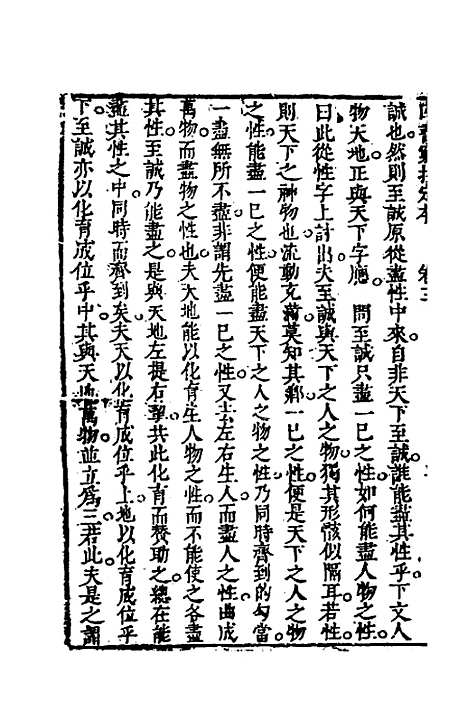 誠也然則至誠原從盡性中來自非天下至誠誰能盡其性乎下文人
物天地正與天下字應　問至誠只盡一巳之性如何能盡人物之性
曰此從性字上計出夫至誠與天下之人之物獨其形骸似隔耳若性
則天下之神物也流動充滿莫知其鄉一巳之性便是天下之人之物
之性能盡一巳之性便能盡天下之人之物之性乃同時齊到的勾當
一盡無所不盡非謂先盡一巳之性又去左右生人而盡人之性曲成
萬物而盡物之性也夫天地能以化育生人物之性而不能使之各盡
其性至誠乃能盡之是與天地左提右挈共此化育而贊助之總在能
盡其性之中同時而齊到矣夫天以化育成位乎上地以化育成位乎
下至誠亦以化育成位乎中其與天地萬物並立為三若此夫是之謂